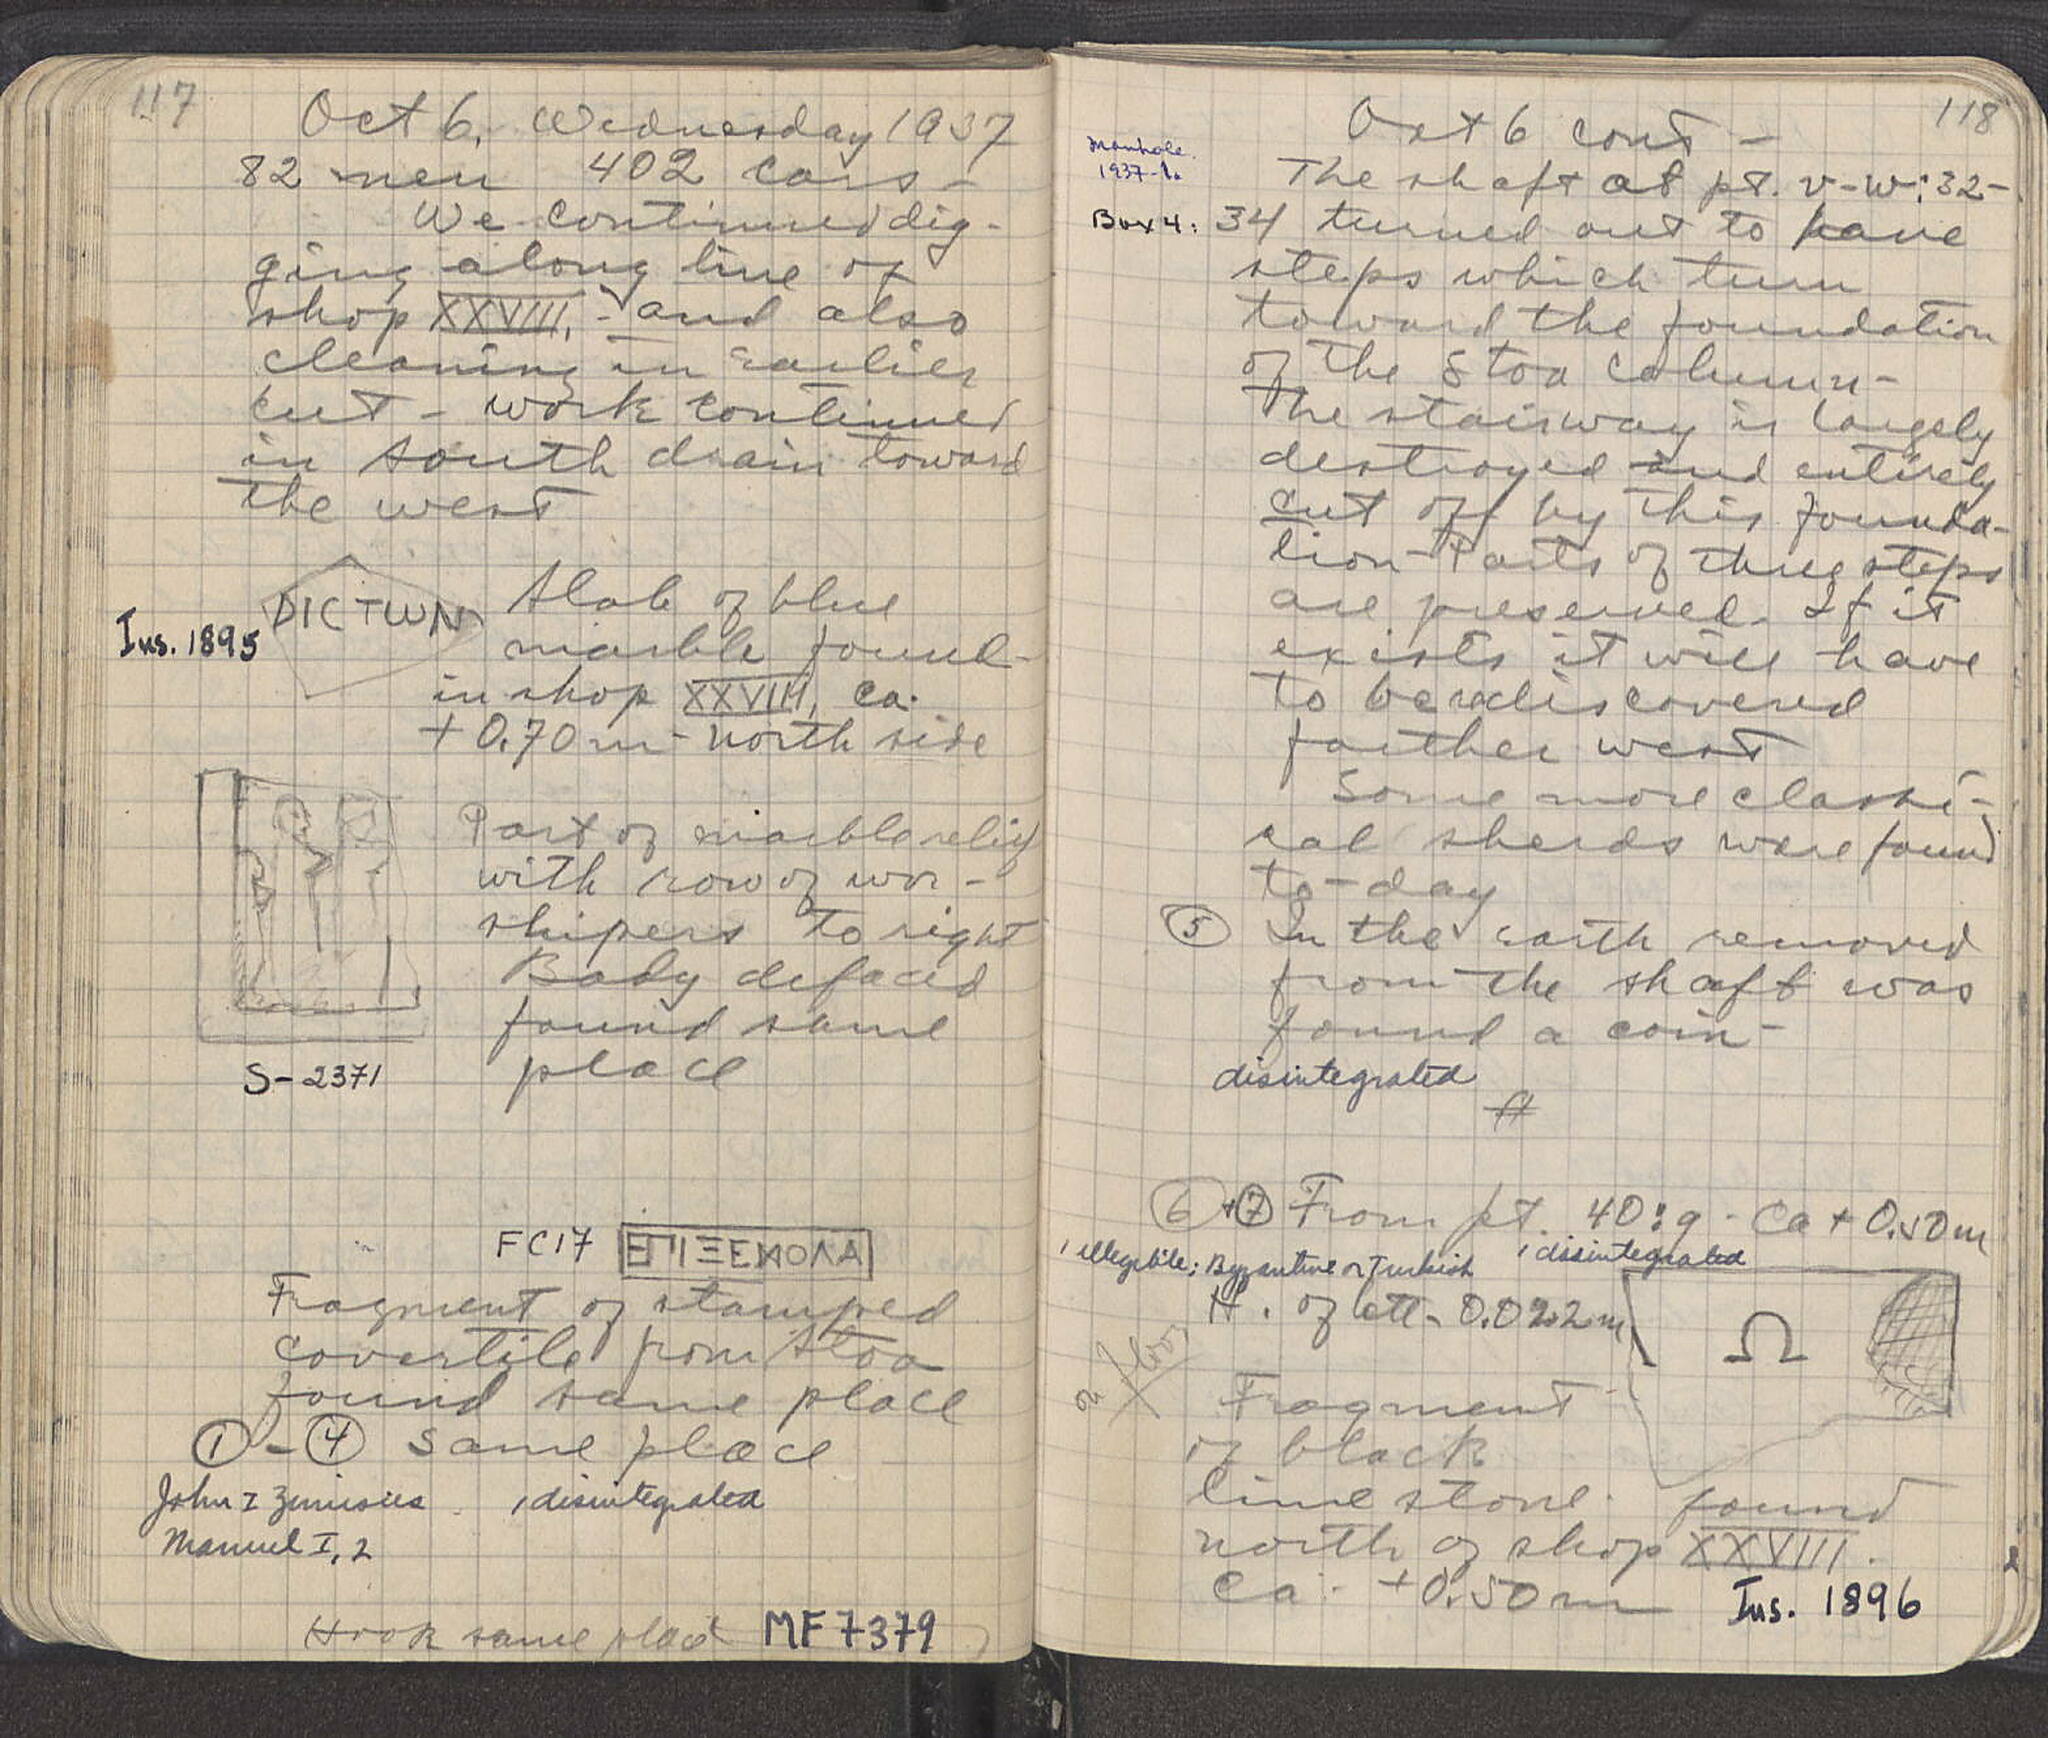 117
Oct 6, Wednesday 1937
82 men 402 cars -
We continued dig-
ging along line of
shop XXVIII, - and also
cleaning in earlier
cut - work continued
in south drain toward
the west
Ins. 1895
DICTWN
Slab of blue
marble found
in shop XXVIII, ca.
+0.70m - north side
Part of marble relief
with row of wor-
shipers to right
Body defaced
found same
place
S-2371
FC17 ΕΠΙΞΕΝΟΛΑ
Fragment of stamped
covertile from Stoa
found same place
1 - 4 same place
John I Zimisces , disintegrated
Manuel I, 2
Hook same place MF 7379
118
Oct 6 cont -
Manhole
1937-1.
The shaft at pt. v-w:32-
Box 4:
34 turned out to have
steps which turn
toward the foundation
of the Stoa column -
The stairway is largely
destroyed and entirely
cut off by this founda-
tion - Parts of three steps
are preserved. If it
exists it will have
to be rediscovered
farther west
Some more classi-
cal sherds were found
to-day
5 In the earth removed
from the shaft was
found a coin -
disintegrated
6 + 7 From pt. 40:g - Ca + 0.50m
1 illegible; Byzantine or Turkish 1 disintegrated
H. of lett. 0.022m
Ω
Fragment
of black
limestone. found
north of shop XXVIII.
Ca. +0.50m Ins. 1896